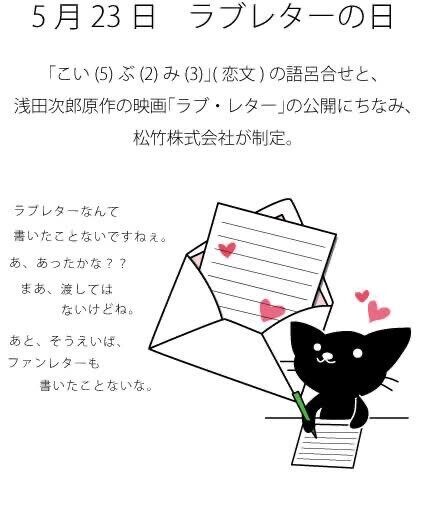 5月23日　ラブレターの日
「こい(5)ぶ(2)み(3)」(恋文)の語呂合せと、
浅田次郎原作の映画「ラブ・レター」の公開にちなみ、
松竹株式会社が制定。
ラブレターなんて
書いたことないですねぇ。
あ、あったかな？？
まあ、渡しては
ないけどね。
あと、そうえいば、
ファンレターも
書いたことないな。